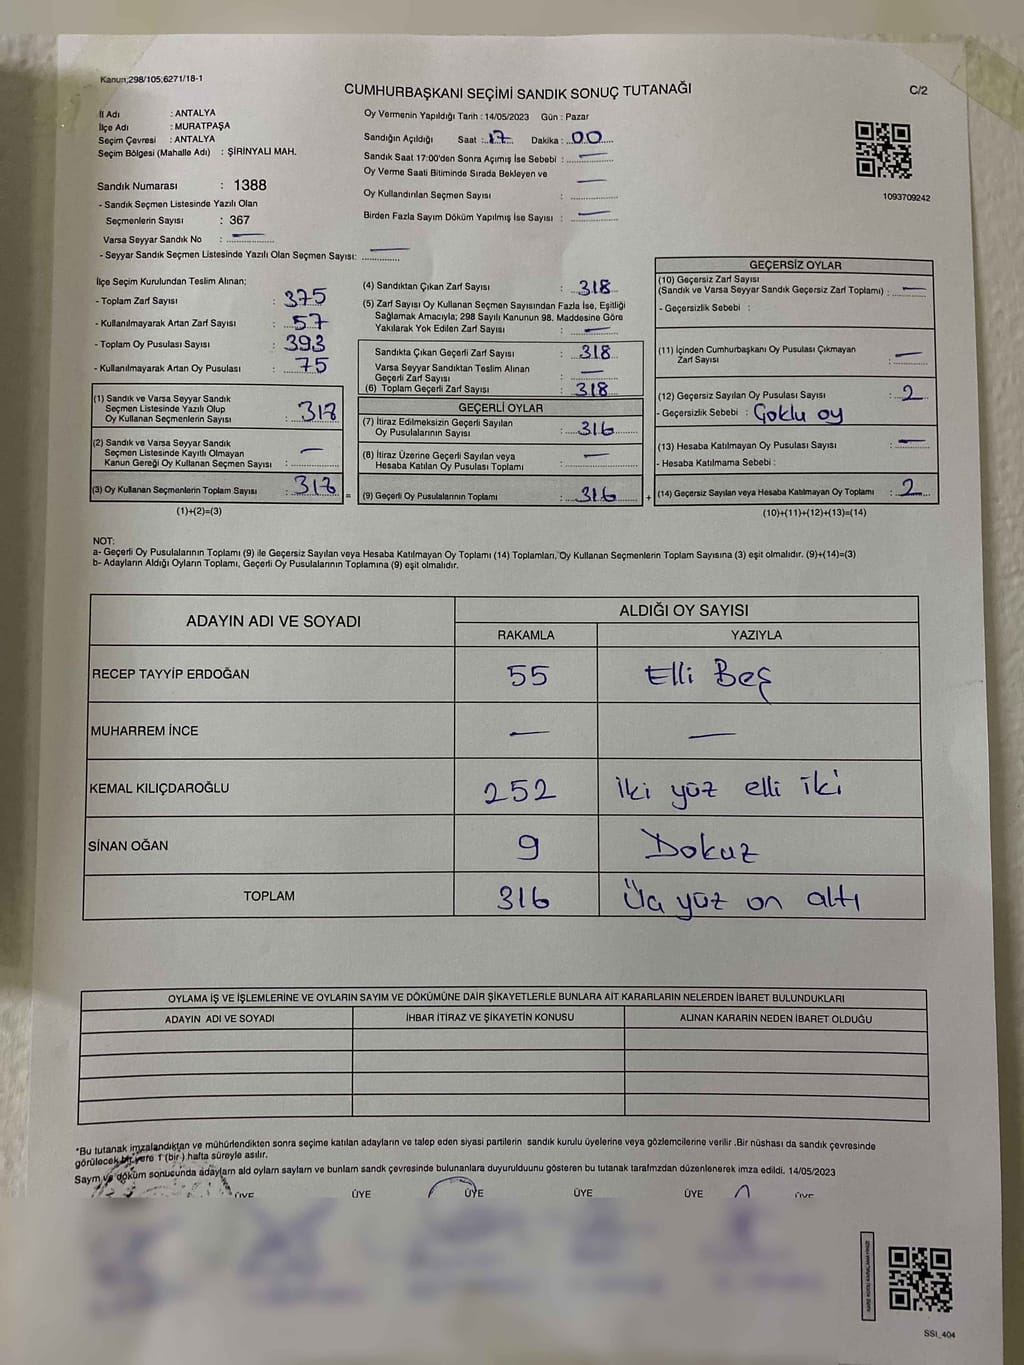 Kanun;298/105,6271/18-1
CUMHURBAŞKANI SEÇİMİ SANDIK SONUÇ TUTANAĞI
C/2
İl Adı : ANTALYA
İlçe Adı : MURATPAŞA
Seçim Çevresi : ANTALYA
Seçim Bölgesi (Mahalle Adı) : ŞİRİNYALI MAH.
Sandık Numarası : 1388
- Sandık Seçmen Listesinde Yazılı Olan
Seçmenlerin Sayısı : 367
Varsa Seyyar Sandık No : —
- Seyyar Sandık Seçmen Listesinde Yazılı Olan Seçmen Sayısı: —
Oy Vermenin Yapıldığı Tarih : 14/05/2023 Gün : Pazar
Sandığın Açıldığı Saat : 17 Dakika : 00
Sandık Saat 17:00'den Sonra Açımış İse Sebebi : —
Oy Verme Saati Bitiminde Sırada Bekleyen ve —
Oy Kullandırılan Seçmen Sayısı :
Birden Fazla Sayım Döküm Yapılmış İse Sayısı : —
1093709242
İlçe Seçim Kurulundan Teslim Alınan;
- Toplam Zarf Sayısı : 375
- Kullanılmayarak Artan Zarf Sayısı : 57
- Toplam Oy Pusulası Sayısı : 393
- Kullanılmayarak Artan Oy Pusulası : 75
(1) Sandık ve Varsa Seyyar Sandık
Seçmen Listesinde Yazılı Olup
Oy Kullanan Seçmenlerin Sayısı : 318
(2) Sandık ve Varsa Seyyar Sandık
Seçmen Listesinde Kayıtlı Olmayan —
Kanun Gereği Oy Kullanan Seçmen Sayısı :
(3) Oy Kullanan Seçmenlerin Toplam Sayısı : 318 =
(1)+(2)=(3)
(4) Sandıktan Çıkan Zarf Sayısı : 318
(5) Zarf Sayısı Oy Kullanan Seçmen Sayısından Fazla İse, Eşitliği
Sağlamak Amacıyla; 298 Sayılı Kanunun 98. Maddesine Göre
Yakılarak Yok Edilen Zarf Sayısı : —
Sandıkta Çıkan Geçerli Zarf Sayısı : 318
Varsa Seyyar Sandıktan Teslim Alınan
Geçerli Zarf Sayısı : —
(6) Toplam Geçerli Zarf Sayısı : 318
GEÇERLİ OYLAR
(7) İtiraz Edilmeksizin Geçerli Sayılan
Oy Pusulalarının Sayısı : 316
(8) İtiraz Üzerine Geçerli Sayılan veya —
Hesaba Katılan Oy Pusulası Toplamı :
(9) Geçerli Oy Pusulalarının Toplamı : 316 +
GEÇERSİZ OYLAR
(10) Geçersiz Zarf Sayısı
(Sandık ve Varsa Seyyar Sandık Geçersiz Zarf Toplamı) : —
- Geçersizlik Sebebi :
(11) İçinden Cumhurbaşkanı Oy Pusulası Çıkmayan
Zarf Sayısı : —
(12) Geçersiz Sayılan Oy Pusulası Sayısı : 2
- Geçersizlik Sebebi : Çoklu oy
(13) Hesaba Katılmayan Oy Pusulası Sayısı : —
- Hesaba Katılmama Sebebi :
(14) Geçersiz Sayılan veya Hesaba Katılmayan Oy Toplamı : 2
(10)+(11)+(12)+(13)=(14)
NOT:
a- Geçerli Oy Pusulalarının Toplamı (9) ile Geçersiz Sayılan veya Hesaba Katılmayan Oy Toplamı (14) Toplamları, Oy Kullanan Seçmenlerin Toplam Sayısına (3) eşit olmalıdır. (9)+(14)=(3)
b- Adayların Aldığı Oyların Toplamı, Geçerli Oy Pusulalarının Toplamına (9) eşit olmalıdır.
ADAYIN ADI VE SOYADI ALDIĞI OY SAYISI
RAKAMLA YAZIYLA
RECEP TAYYİP ERDOĞAN 55 Elli Beş
MUHARREM İNCE — —
KEMAL KILIÇDAROĞLU 252 İki yüz elli iki
SİNAN OĞAN 9 Dokuz
TOPLAM 316 Üç yüz on altı
OYLAMA İŞ VE İŞLEMLERİNE VE OYLARIN SAYIM VE DÖKÜMÜNE DAİR ŞİKAYETLERLE BUNLARA AİT KARARLARIN NELERDEN İBARET BULUNDUKLARI
ADAYIN ADI VE SOYADI İHBAR İTİRAZ VE ŞİKAYETİN KONUSU ALINAN KARARIN NEDEN İBARET OLDUĞU
*Bu tutanak imzalandıktan ve mühürlendikten sonra seçime katılan adayların ve talep eden siyasi partilerin sandık kurulu üyelerine veya gözlemcilerine verilir .Bir nüshası da sandık çevresinde
görülecek bir yere 1 (bir ) hafta süreyle asılır.
Sayım ve döküm sonucunda adayların aldı oyların sayların ve bunların sandk çevresinde bulunanlara duyurulduunu gösteren bu tutanak tarafmzdan düzenlenerek imza edildi. 14/05/2023
ÜYE ÜYE ÜYE ÜYE ÜYE ÜYE
SSI_404